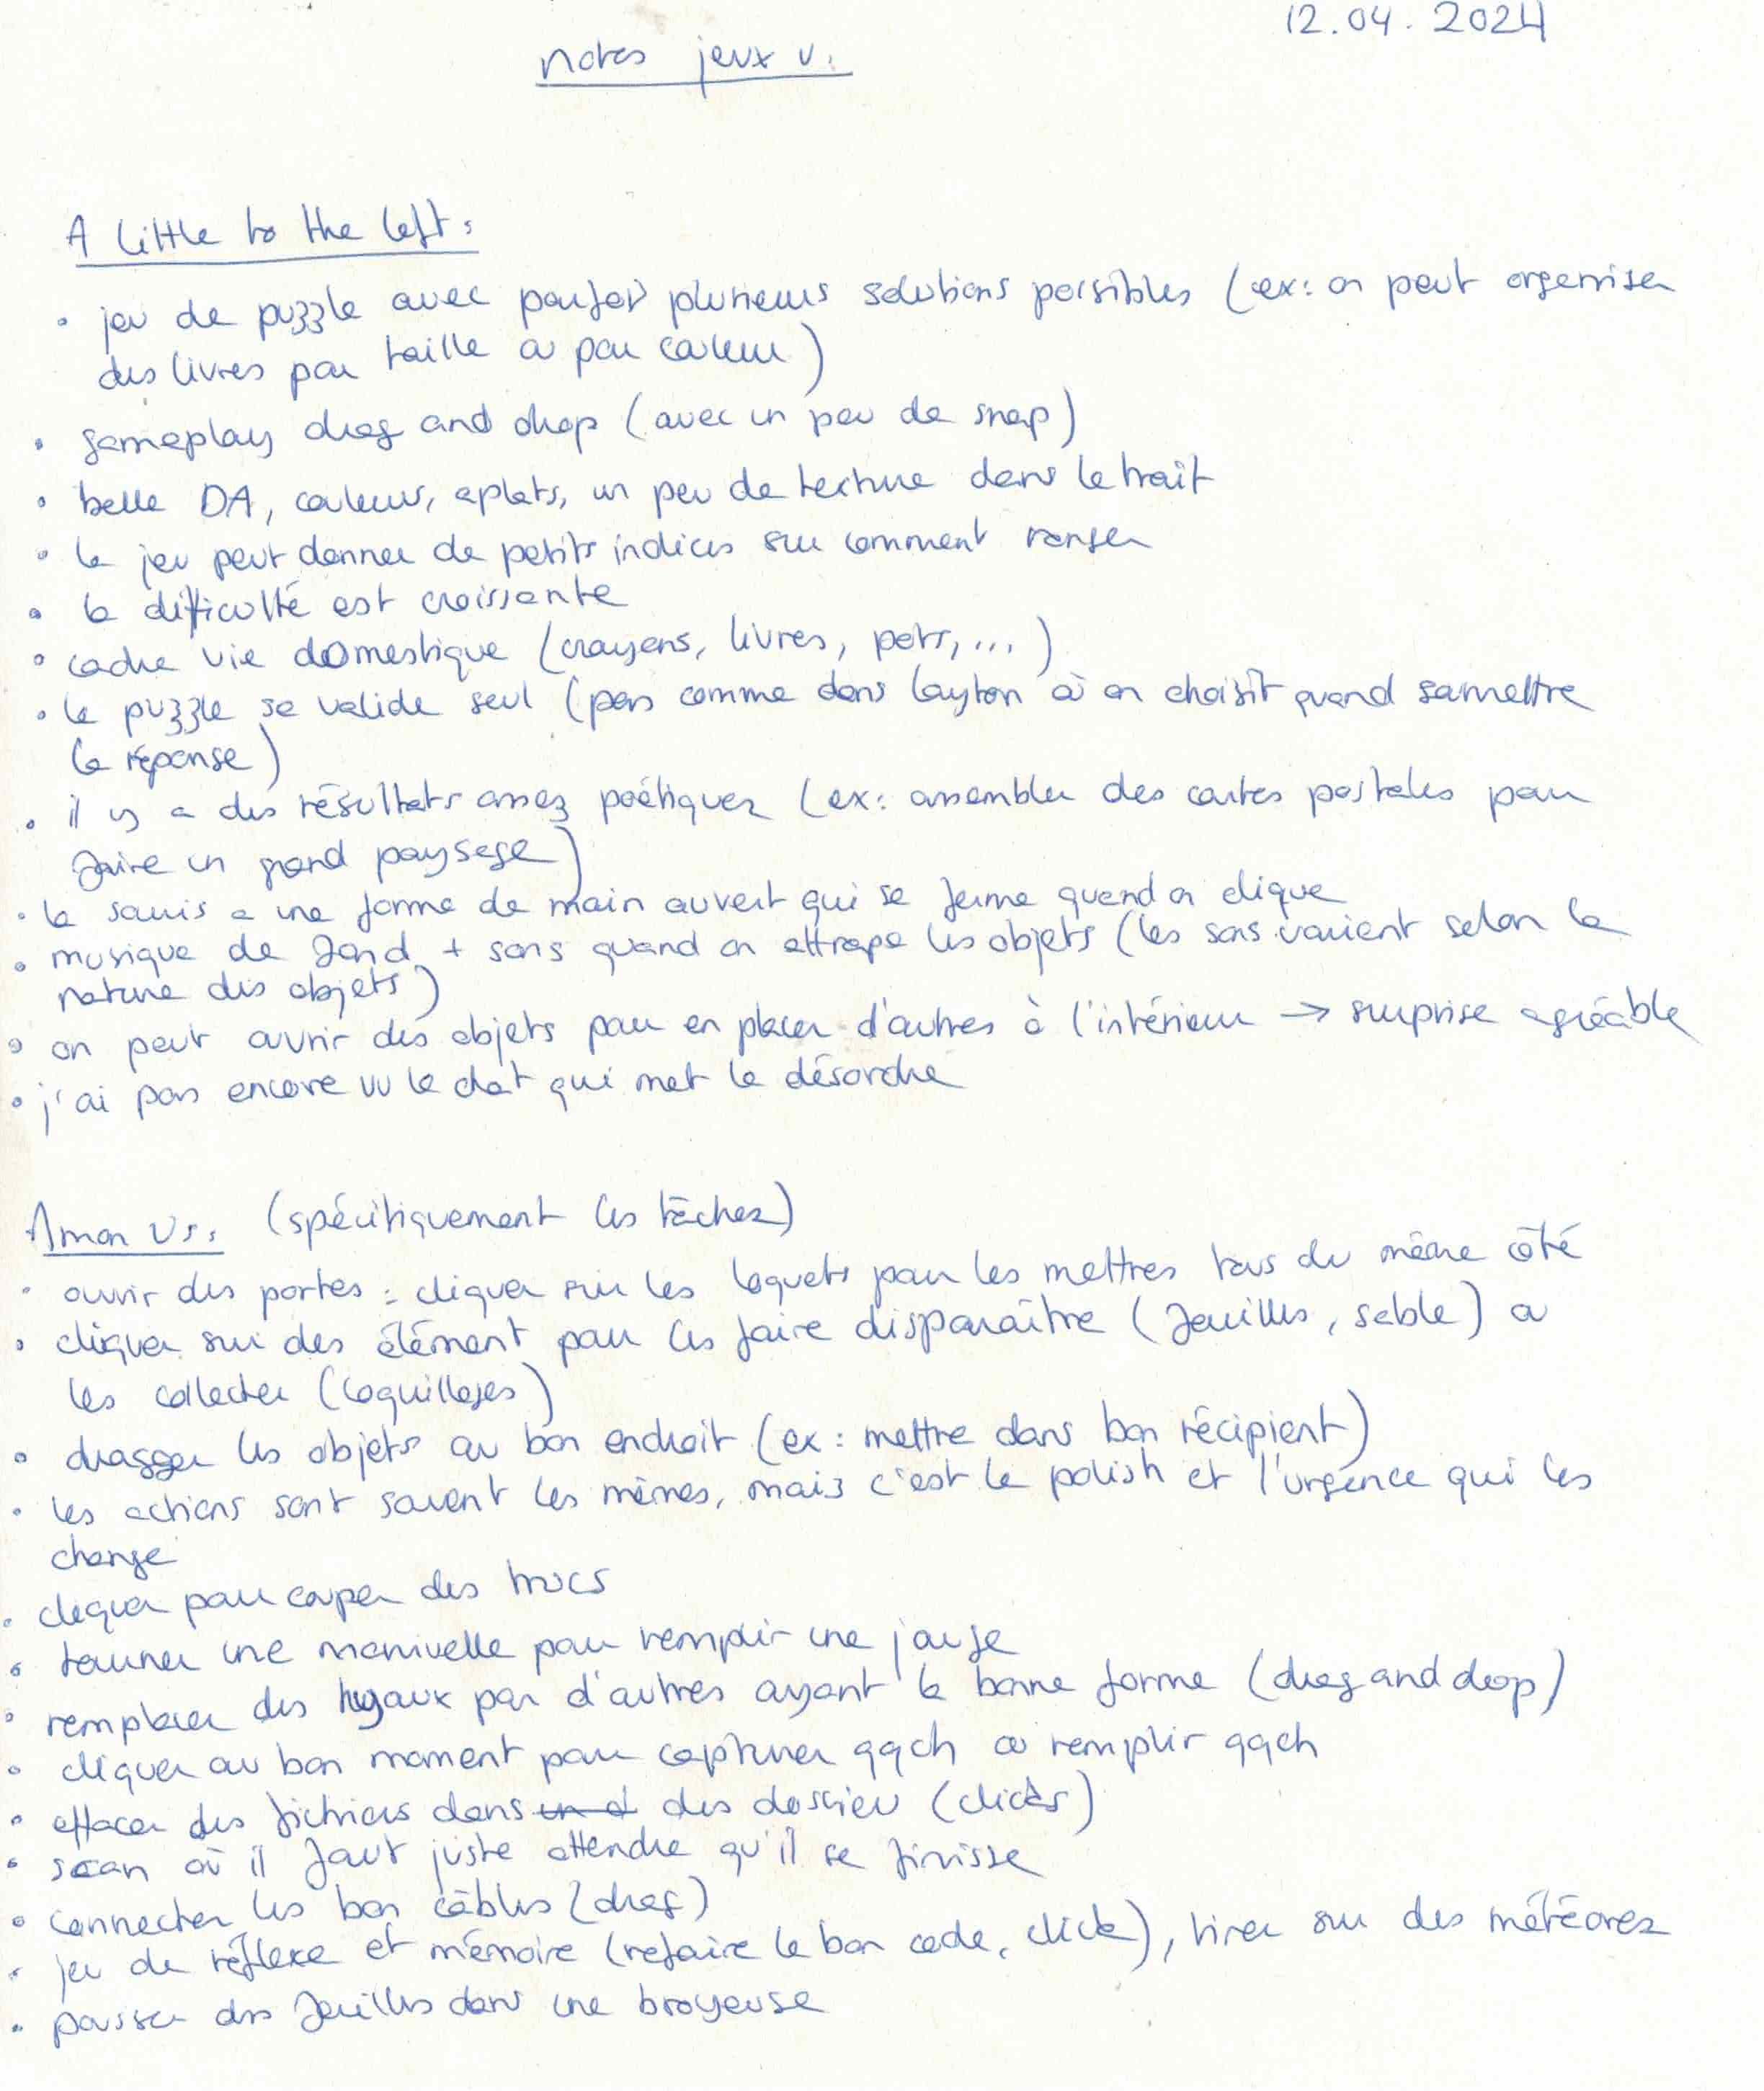 12.04.2024
notes jeux v.
A little to the left:
• jeu de puzzle avec parfois plusieurs solutions possibles (ex: on peut organiser
des livres par taille ou par couleur)
• gameplay drag and drop (avec un peu de snap)
• belle DA, couleurs, aplats, un peu de texture dans le trait
• le jeu peut donner de petits indices sur comment ranger
• la difficulté est croissante
• cadre vie domestique (crayons, livres, pots, ...)
• le puzzle se valide seul (pas comme dans Layton où on choisit quand soumettre
la réponse)
• il y a des résultats assez poétiques (ex: assembler des cartes postales pour
faire un grand paysage)
• la souris a une forme de main ouvert qui se ferme quand on clique
• musique de fond + sons quand on attrape les objets (les sons varient selon la
nature des objets)
• on peut ouvrir des objets pour en placer d'autres à l'intérieur → surprise agréable
• j'ai pas encore vu le chat qui met le désordre
Amon Us: (spécifiquement les tâches)
• ouvrir des portes : cliquer sur les loquets pour les mettres tous du même côté
• cliquer sur des élément pour les faire disparaître (feuilles, sable) ou
les collecter (coquillages)
• dragger les objets au bon endroit (ex : mettre dans bon récipient)
• les actions sont souvent les mêmes, mais c'est le polish et l'urgence qui les
change
• cliquer pour couper des trucs
• tourner une manivelle pour remplir une jauge
• remplacer des tuyaux par d'autres ayant la bonne forme (drag and drop)
• cliquer au bon moment pour capturer qqch ou remplir qqch
• effacer des fichiers dans un d des dossier (clicks)
• scan où il faut juste attendre qu'il se finisse
• connecter les bon câbles (drag)
• jeu de réflexe et mémoire (refaire le bon code, click), tirer sur des météores
• pousser des feuilles dans une broyeuse